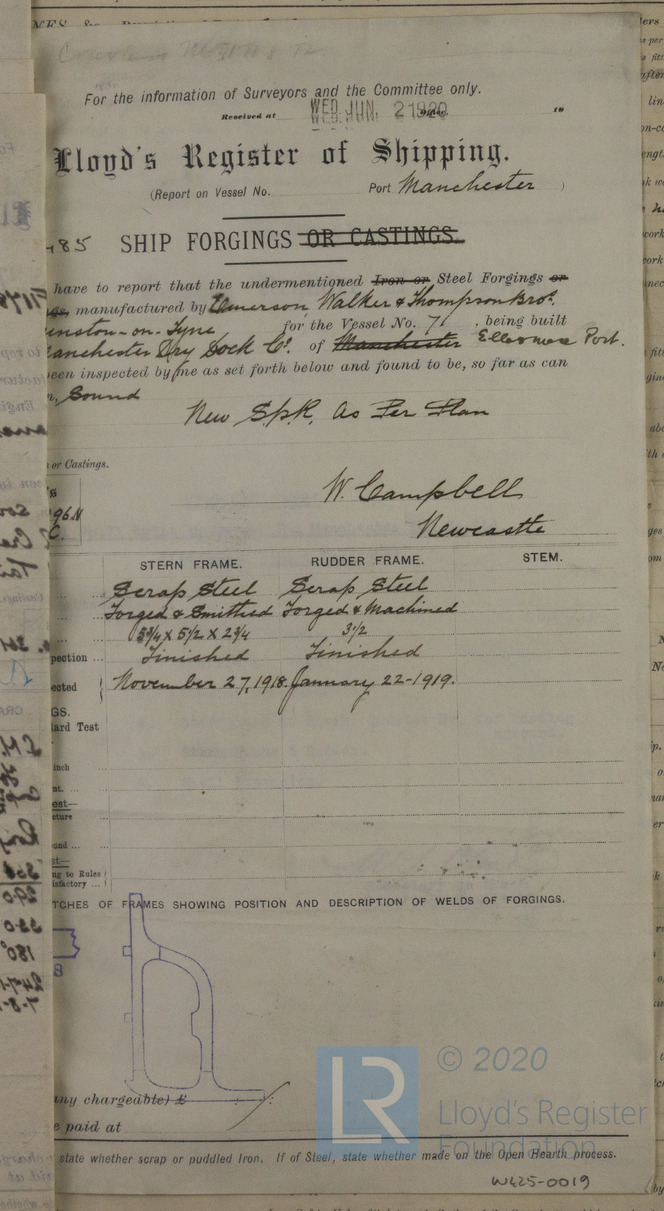 For the information of Surveyors and the Committee only.
Received at WED. JUN. 2 1920 19
Lloyd's Register of Shipping.
(Report on Vessel No. Port Manchester )
485 SHIP FORGINGS OR CASTINGS.
have to report that the undermentioned Iron or Steel Forgings or
manufactured by Emerson Walker & Thompson Bros.
unston-on-Tyne for the Vessel No. 71, being built
anchester Dry Dock Co. of Manchester Ellesmere Port.
een inspected by me as set forth below and found to be, so far as can
Sound
New Spk, As Per Plan
or Castings.
W. Campbell
96N
Newcastle
C.
STERN FRAME. RUDDER FRAME. STEM.
Scrap Steel Scrap Steel
Forged & Smithied Forged & Machined
5¾ x 5½ x 2¾ 3½
pection Finished Finished
ected November 27, 1918. January 22-1919.
GS.
ard Test
inch
nt.
est—
cture
und
st—
ng to Rules
isfactory
TCHES OF FRAMES SHOWING POSITION AND DESCRIPTION OF WELDS OF FORGINGS.
any chargeable) £ : / :
e paid at
state whether scrap or puddled Iron. If of Steel, state whether made on the Open Hearth process.
LR © 2020
Lloyd's Register
Foundation
W425-0019